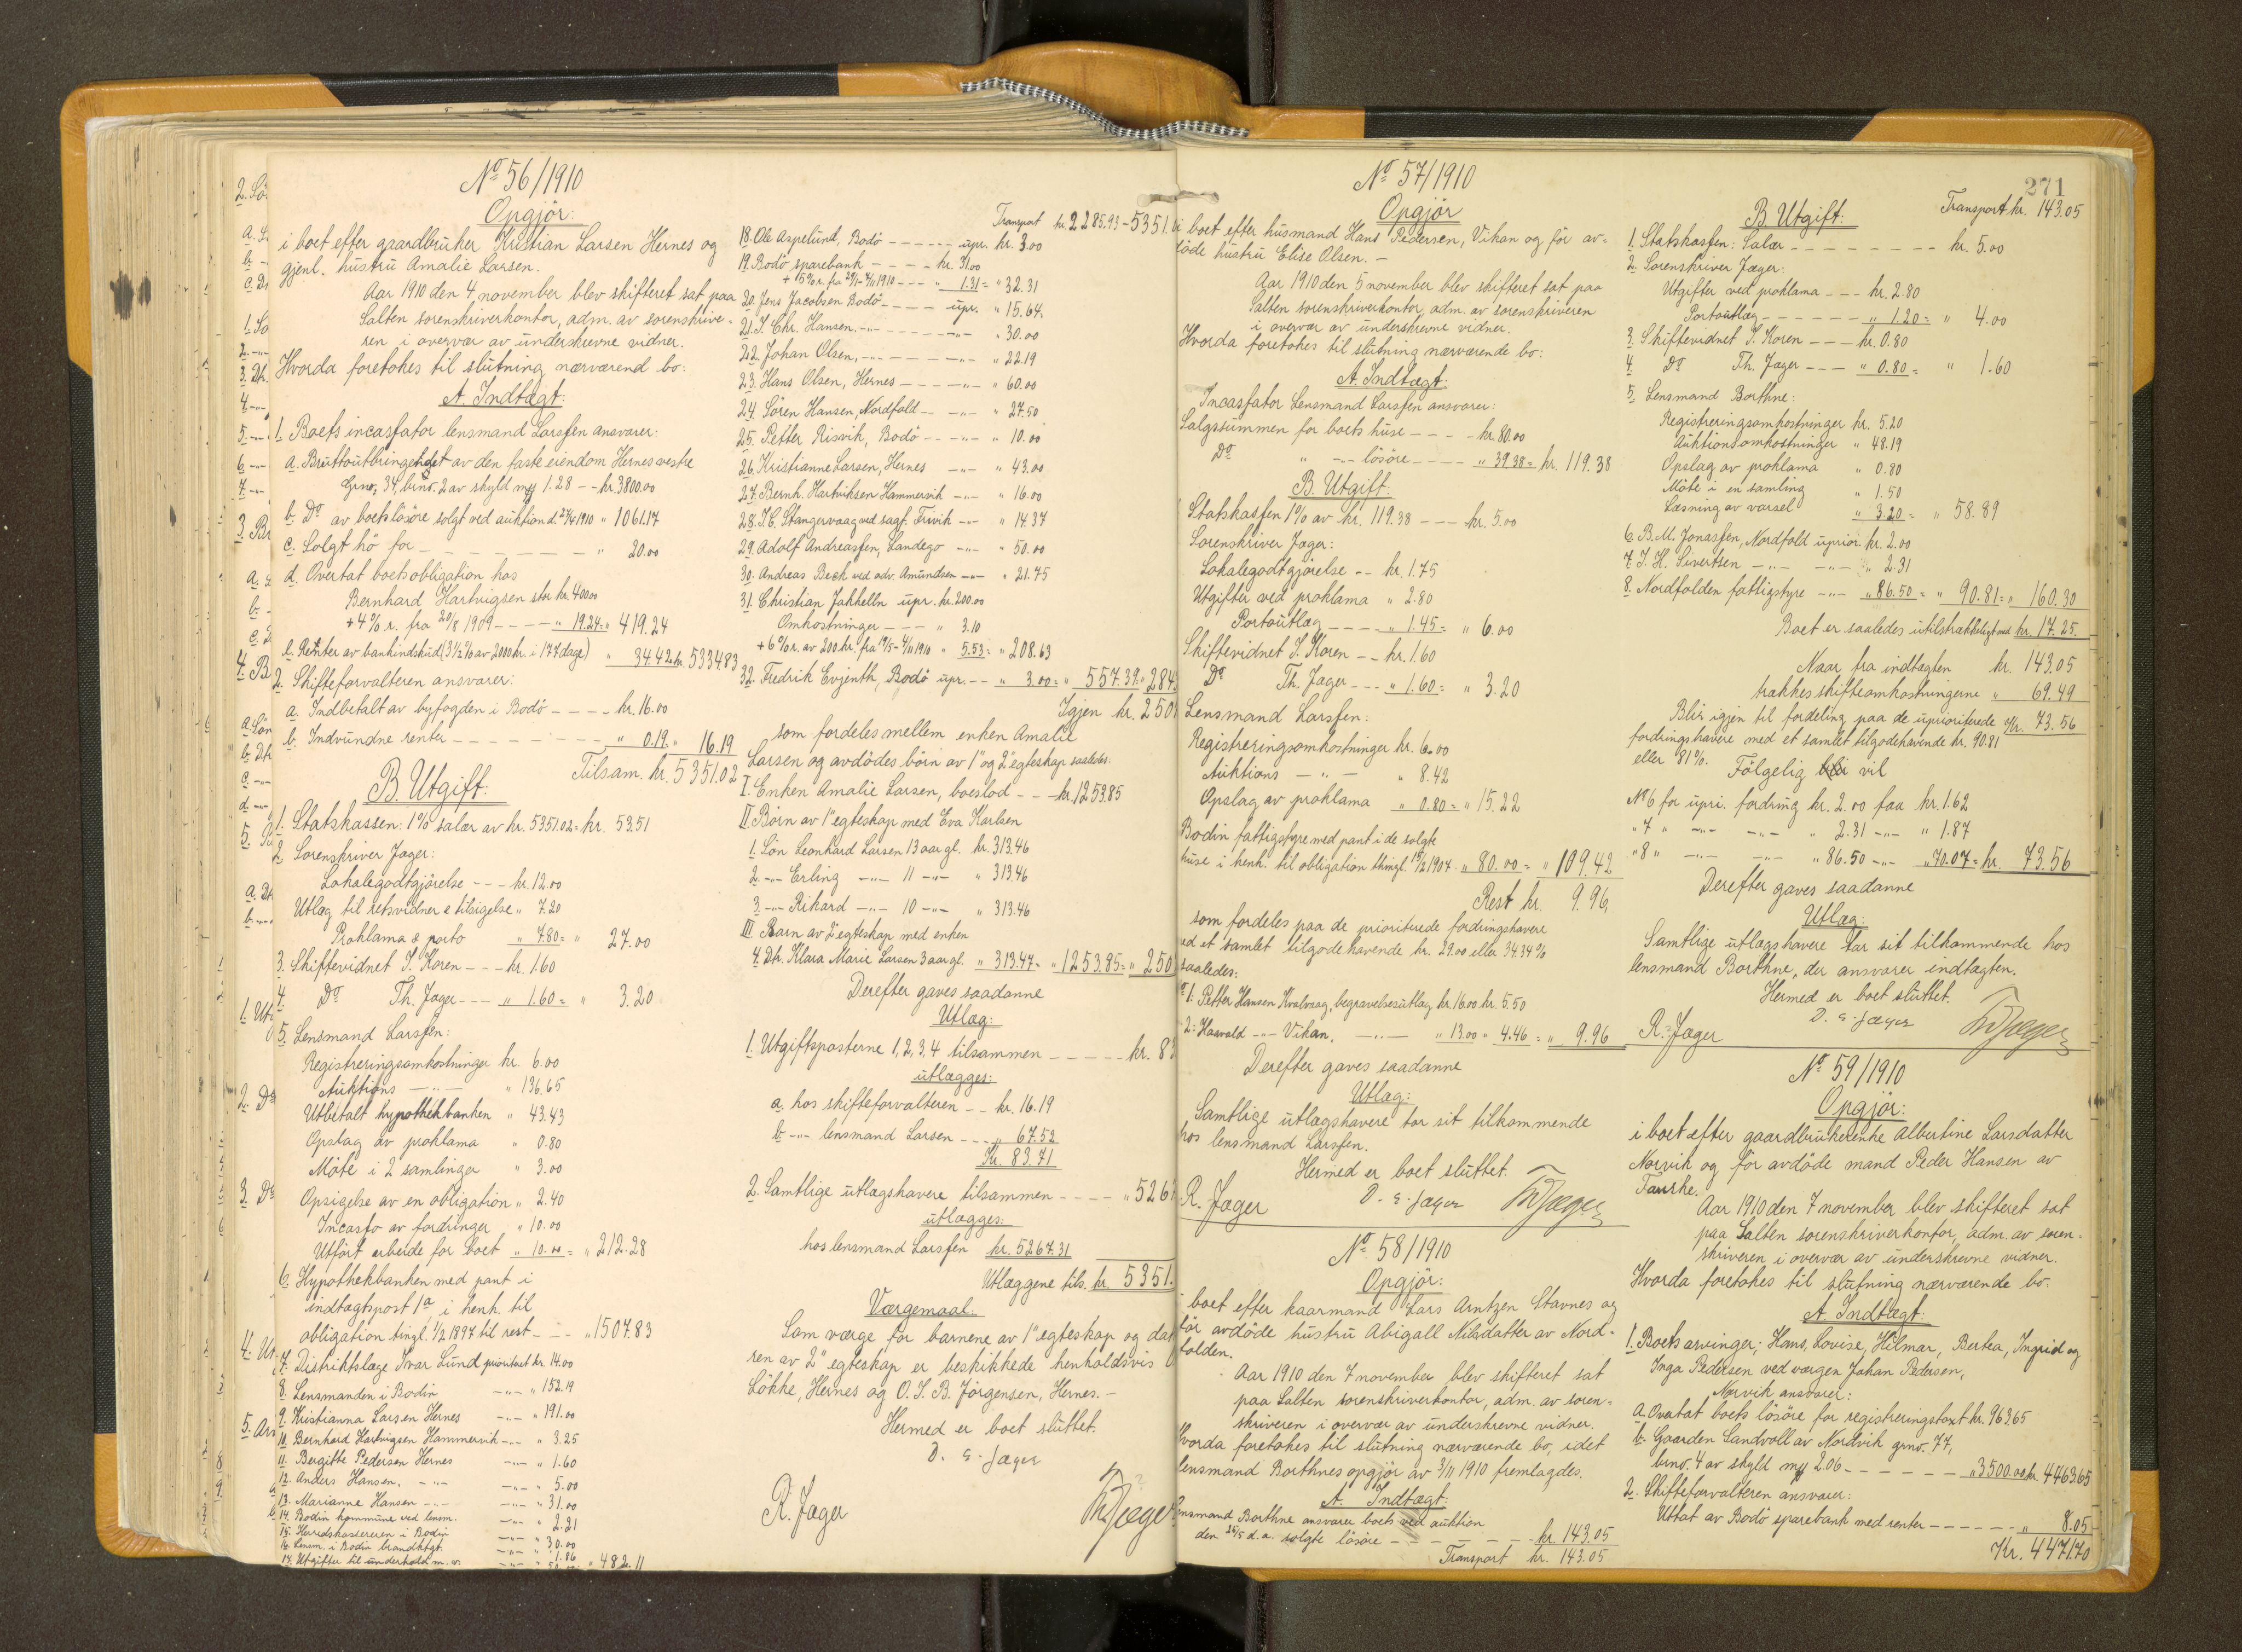 No 56/1910
Opgjör:
i boet efter gaardbruker Kristian Larsen Hernes og
gjenl. hustru Amalie Larsen.
Aar 1910 den 4 november blev skifteret sat paa
Salten sorenskriverkontor, adm. av sorenskrive-
ren i overvær av underskrevne vidner.
Hvorda foretokes til slutning nærværend bo:
A. Indtægt:
1. Boets incassator lensmand Larssen ansvarer:
a. Bruttoutbringendet av den faste eiendom Hernes vestre
Grno. 34, brno. 2 av skyld my 1.28 -- kr. 3800.00
b. Do av boets lösöre solgt ved auktion d. 23/4 1910 " 1061.17
c. Solgt hö for - - - - - - - " 20.00
d. Overtat boets obligation hos
Bernhard Hartvigsen stor kr. 400.00
+ 4% r. fra 20/8 1909 - - - - " 19.24 = " 419.24
e. Renter av bankindskud (3 1/2 % av 2000 kr. i 177 dage) " 34.42 kr. 5334.83
2. Skifteforvalteren ansvarer:
a. Indbetalt av byfogden i Bodö - - - - kr. 16.00
b. Indvundne renter - - - - - - - " 0.19 " 16.19
Tilsam. kr. 5351.02
B. Utgift:
1. Statskassen: 1% salær av kr. 5351.02 = kr. 53.51
2. Sorenskriver Jæger:
Lokalegodtgjörelse - - - kr. 12.00
Utlæg til retsvidner & tilsigelse " 7.20
Proklama & porto " 7.80 = " 27.00
3. Skiftevidnet J. Koren - - - kr. 1.60
4. Do Th. Jæger - - - " 1.60 = " 3.20
5. Lensmand Larssen:
Registreringsomkostninger kr. 6.00
Auktions -"- " 136.65
Utbetalt hypothekbanken " 43.43
Opslag av proklama " 0.80
Möte i 2 samlinger " 3.00
Opsigelse av en obligation " 2.40
Incasso av fordringer " 10.00
Utfört arbeide for boet " 10.00 = " 212.28
6. Hypothekbanken med pant i
indtægtspost 1a i henh. til
obligation tingl. 1/2 1897 til rest - - - " 1507.83
7. Distriktslæge Ivar Lund prioritert kr. 14.00
8. Lensmanden i Bodin -"- " 152.19
9. Kristianna Larsen Hernes -"- " 191.00
10. Bernhard Hartvigsen Hammervik -"- " 3.25
11. Bergitte Pedersen Hernes -"- " 1.60
12. Anders Hansen, -"- -"- " 5.00
13. Marianne Hansen -"- -"- " 31.00
14. Bodin kommune ved lensm. -"- " 2.21
15. Herredskassereren i Bodin -"- " 30.00
16. Lensm. i Bodin brandktgt. -"- " 1.86
17. Utgifter til underhold m. v. -"- " 482.11
Transport kr. 2285.93 - 5351.
18. Ole Aspelund, Bodö - - - - - upr. kr. 3.00
19. Bodö sparebank - - - - kr. 31.00
+ 5% r. fra - 4/11 1910 - - - " 1.31 = " 32.31
20. Jens Jacobsen Bodö - - - - upr. " 15.64
21. J. Chr. Hansen. -"- - - - -"- " 30.00
22. Johan Olsen, -"- - - - -"- " 22.19
23. Hans Olsen, Hernes - - - -"- " 60.00
24. Sören Hansen, Nordfold - - -"- " 27.50
25. Petter Risvik, Bodö - - -"- " 10.00
26. Kristianne Larsen, Hernes -"- " 43.00
27. Bernh. Hartviksen Hammervik -"- " 16.00
28. J. C. Stangervaag ved sagf. Trivik -"- " 14.37
29. Adolf Andreassen, Landego -"- " 50.00
30. Andreas Beck ved adv. Amundsen -"- " 21.75
31. Christian Jakhelln upr. kr. 200.00
Omkostninger - - - " 3.10
+ 6% r. av 200 kr. fra 19/5 - 4/11 1910 " 5.53 = " 208.63
32. Fredrik Evjenth, Bodö upr. - - " 3.00 = " 557.39 " 284
Igjen kr. 250
som fordeles mellem enken Amalie
Larsen og avdödes börn av 1" og 2" egteskap saaledes:
I. Enken Amalie Larsen, boeslod - - kr. 1253.85
II. Börn av 1" egteskap med Eva Karlsen
1. Sön Leonhard Larsen 13 aar gl. kr. 313.46
2. -"- Erling -"- 11 -"- " 313.46
3. -"- Rikard -"- 10 -"- " 313.46
III Barn av 2" egteskap med enken
4. Dtr. Klara Marie Larsen 3 aar gl. " 313.47 = " 1253.85 = " 250
Derefter gaves saadanne
Utlæg:
1. Utgiftsposterne 1, 2, 3, 4 tilsammen - - - - - kr. 83
utlægges:
a. hos skifteforvalteren - - kr. 16.19
b. -"- lensmand Larsen - - - " 67.52
Kr. 83.71
2. Samtlige utlægshavere tilsammen - - - - " 526
utlægges:
hos lensmand Larssen kr. 5267.31
Utlæggene tils. kr. 5351.
Værgemaal:
Som værge for barnene av 1" egteskap og dat
ren av 2" egteskap er beskikkede henholdsvis
Lökke, Hernes og O. J. B. Jörgensen, Hernes. -
Hermed er boet sluttet.
D. E. Jæger
R. Jæger
No 57/1910
Opgjör
i boet efter husmand Hans Pedersen, Vikan og för av-
döde hustru Elise Olsen. -
Aar 1910 den 5 november blev skifteret sat paa
Salten sorenskriverkontor, adm. av sorenskriveren
i overvær av underskrevne vidner.
Hvorda foretokes til slutning nærværende bo:
A. Indtægt:
Incassator Lensmand Larssen ansvarer:
Salgssummen for boets huse - - - - kr. 80.00
Do " -"- lösöre - - - - " 39.38 = kr. 119.38
B. Utgift:
Statskassen 1% av kr. 119.38 - - - kr. 5.00
Sorenskriver Jæger:
Lokalegodtgjörelse - - kr. 1.75
Utgifter ved proklama " 2.80
Portoutlæg - - - - " 1.45 = " 6.00
Skiftevidnet J. Koren - - kr. 1.60
Do Th. Jæger - - - " 1.60 = " 3.20
Lensmand Larssen:
Registreringsomkostninger kr. 6.00
Auktions -"- " 8.42
Opslag av proklama " 0.80 = " 15.22
Bodin fattigstyre med pant i de solgte
huse i henh. til obligation thingl. 15/2 1907 " 80.00 = " 109.42
Rest kr. 9.96,
som fordeles paa de prioriterede fordringshavere
ved et samlet tilgodehavende kr. 29.00 eller 34.34%
saaledes:
1. Petter Hansen Kvalvaag, begravelsesutlæg kr. 16.00 kr. 5.50
2. Haavald -"- Vikan, -"- " 13.00 " 4.46 = " 9.96
Derefter gaves saadanne
Utlæg:
Samtlige utlægshavere tar sit tilkommende
hos lensmand Larssen.
Hermed er boet sluttet.
R. Jæger D. E. Jæger
No 58/1910
Opgjör:
i boet efter kaarmand Lars Arntzen Stavnes og
för avdöde hustru Abigall Nilsdatter av Nord-
folden.
Aar 1910 den 7 november blev skifteret sat
paa Salten sorenskriverkontor, adm. av soren-
skriveren i overvær av underskrevne vidner.
Hvorda foretokes til slutning nærværende bo, idet
lensmand Borthnes opgjör av 3/11 1910 fremlagdes.
A. Indtægt:
Lensmand Borthne ansvarer boets ved auktion
den 26/5 d. a. solgte lösöre - - - - - - kr. 143.05
Transport kr. 143.05
271
Transport kr. 143.05
B. Utgift:
1. Statskassen: Salær - - - - - - - - kr. 5.00
2. Sorenskriver Jæger:
Utgifter ved proklama - - - kr. 2.80
Portoutlæg - - - - - - " 1.20 = " 4.00
3. Skiftevidnet J. Koren - - - kr. 0.80
4. Do Th. Jæger - - - " 0.80 = " 1.60
5. Lensmand Borthne:
Registreringsomkostninger kr. 5.20
Auktionsomkostninger " 48.19
Opslag av proklama " 0.80
Möte i en samling " 1.50
Læsning av varsel " 3.20 = " 58.89
6. B. M. Jonassen, Nordfold uprior. kr. 2.00
7. J. H. Sivertsen -"- -"- " 2.31
8. Nordfolden fattigstyre -"- " 86.50 = " 90.81 = " 160.30
Boet er saaledes utilstrækkeligt med kr. 17.25.
Naar fra indtægten kr. 143.05
trækkes skifteomkostningerne " 69.49
Blir igjen til fordeling paa de uprioriterede kr. 73.56
fordringshavere med et samlet tilgodehavende kr. 90.81
eller 81%. Fölgelig vil
No 6 for upri. fordring kr. 2.00 faa kr. 1.62
" 7 " -"- -"- " 2.31 -"- " 1.87
" 8 " -"- -"- " 86.50 -"- " 70.07 = kr. 73.56
Derefter gaves saadanne
Utlæg:
Samtlige utlægshavere tar sit tilkommende hos
lensmand Borthne, der ansvarer indtægten.
Hermed er boet sluttet.
R. Jæger D. E. Jæger
No 59/1910
Opgjör:
i boet efter gaardbrukerenke Albertine Larsdatter
Norvik og för avdöde mand Peder Hansen av
Fauske.
Aar 1910 den 7 november blev skifteret sat
paa Salten sorenskriverkontor, adm. av soren-
skriveren i overvær av underskrevne vidner.
Hvorda foretokes til slutning nærværende bo.
A. Indtægt:
1. Boets arvinger; Hans, Lovise, Hilmar, Bertea, Ingrid og
Inga Pedersen ved værgen Johan Pedersen,
Norvik ansvarer:
a. Overtat boets lösöre for registreringstaxt kr. 963.65
b. Gaarden Sandvoll av Nordvik grno. 77,
brno. 4 av skyld my 2.06 - - - - - - " 3500.00 kr. 4463.65
2. Skifteforvalteren ansvarer:
Uttat av Bodö sparebank med renter - - - - - " 8.05
Kr. 4471.70